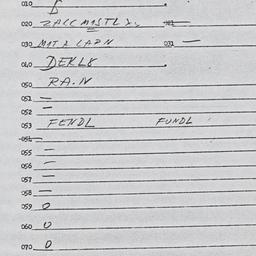 010
020 ZACCMASTLX.
030 MAT X LAPN 031 —
040 DEKLX
050 RA.N
051 —
052 —
053 FENDL FUNDL
054
055 —
056 —
057 —
058 —
059 0
060 0
070 0